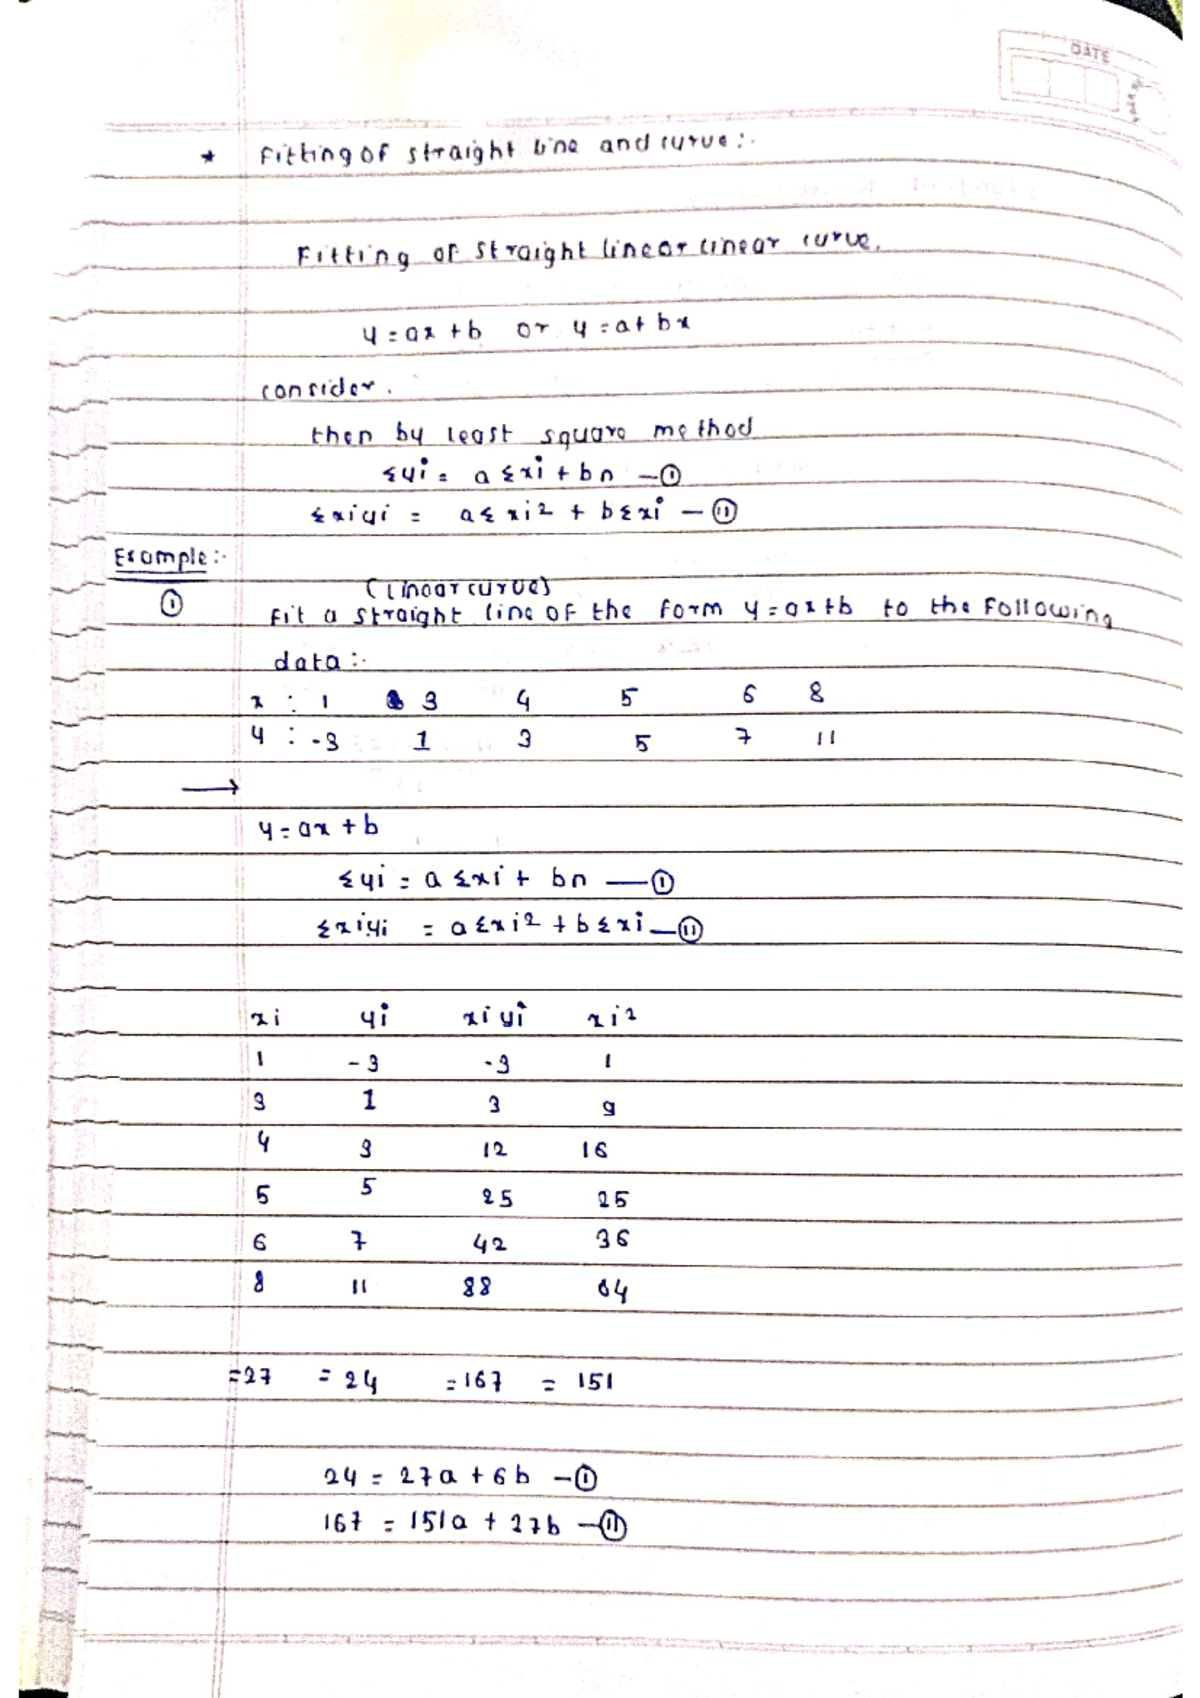 DATE
* Fitting of straight line and curve :-
Fitting of straight linear linear curve.
y = ax + b or y = a + bx
consider.
then by least square method
Σyi = a Σxi + bn — ①
Σxiyi = aΣ xi² + bΣxi — ⑪
Example :-
(Linear curve)
① Fit a straight line of the form y = ax+b to the following
data :-
x : 1 3 4 5 6 8
y : -3 1 3 5 7 11
→
y = ax + b
Σyi = a Σxi + bn — ①
Σxiyi = aΣxi² + bΣxi — ⑪
xi yi xiyi xi²
1 -3 -3 1
3 1 3 9
4 3 12 16
5 5 25 25
6 7 42 36
8 11 88 64
=27 = 24 =167 = 151
24 = 27a + 6b — ①
167 = 151a + 27b — ⑪